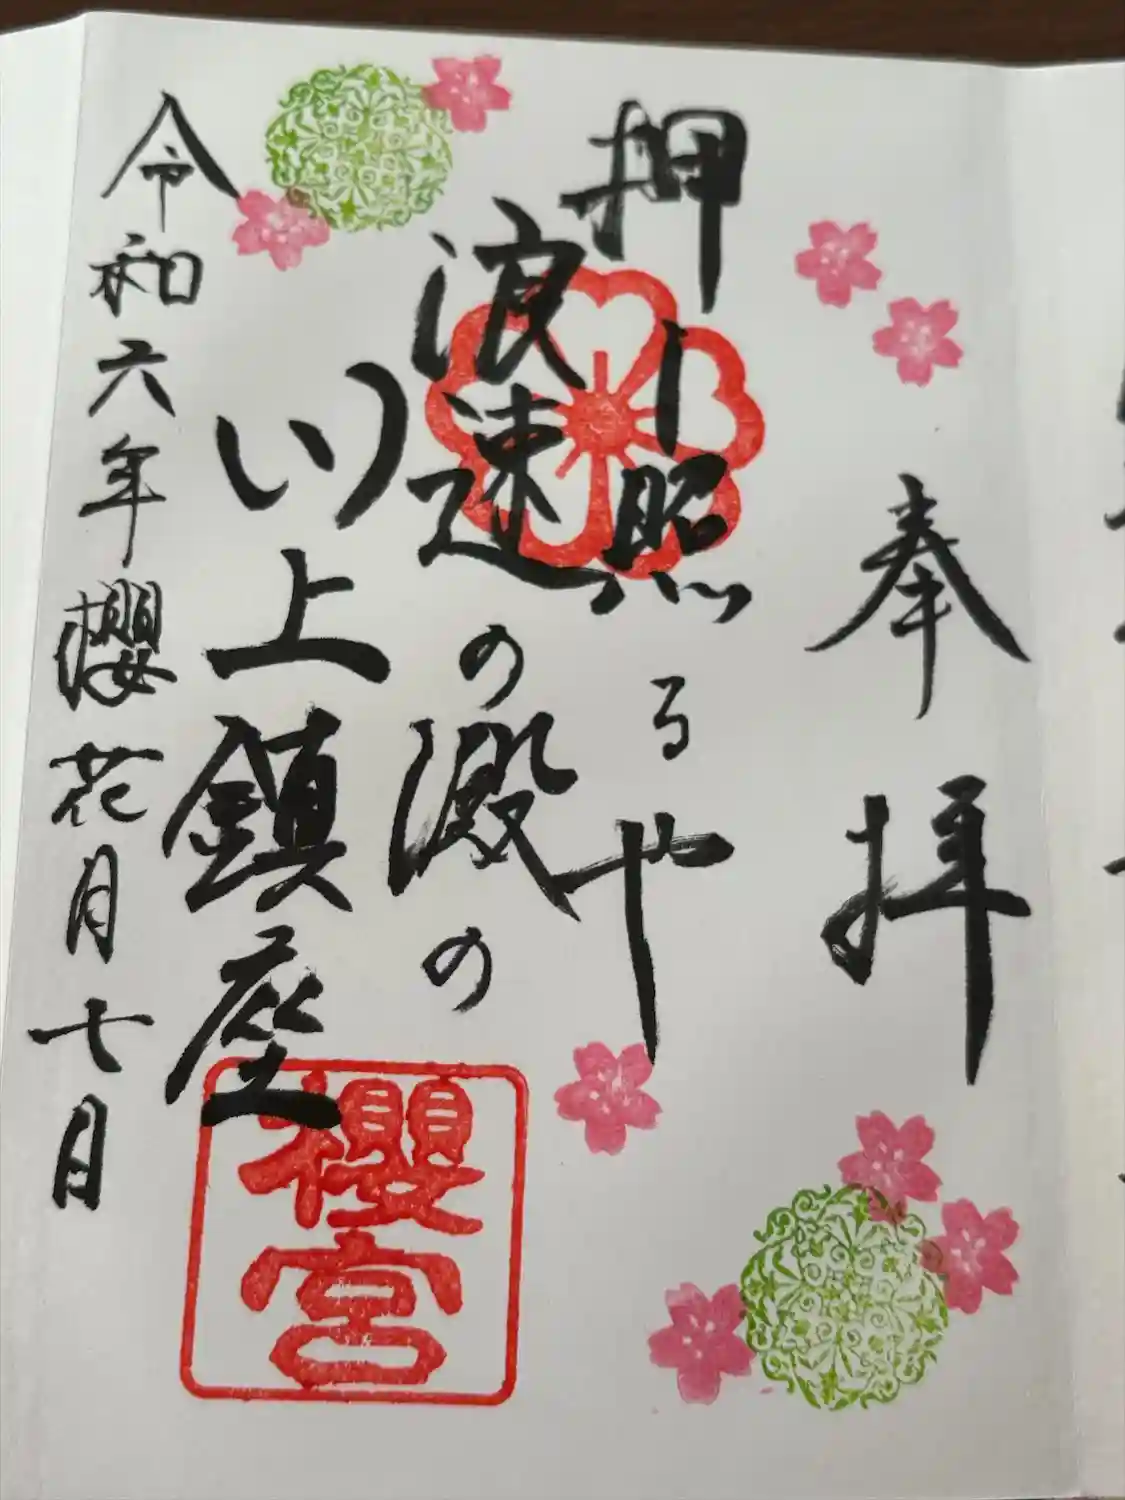 奉拝
押し照るや
浪速の澱の
川上鎮座
令和六年櫻花月七日
櫻宮